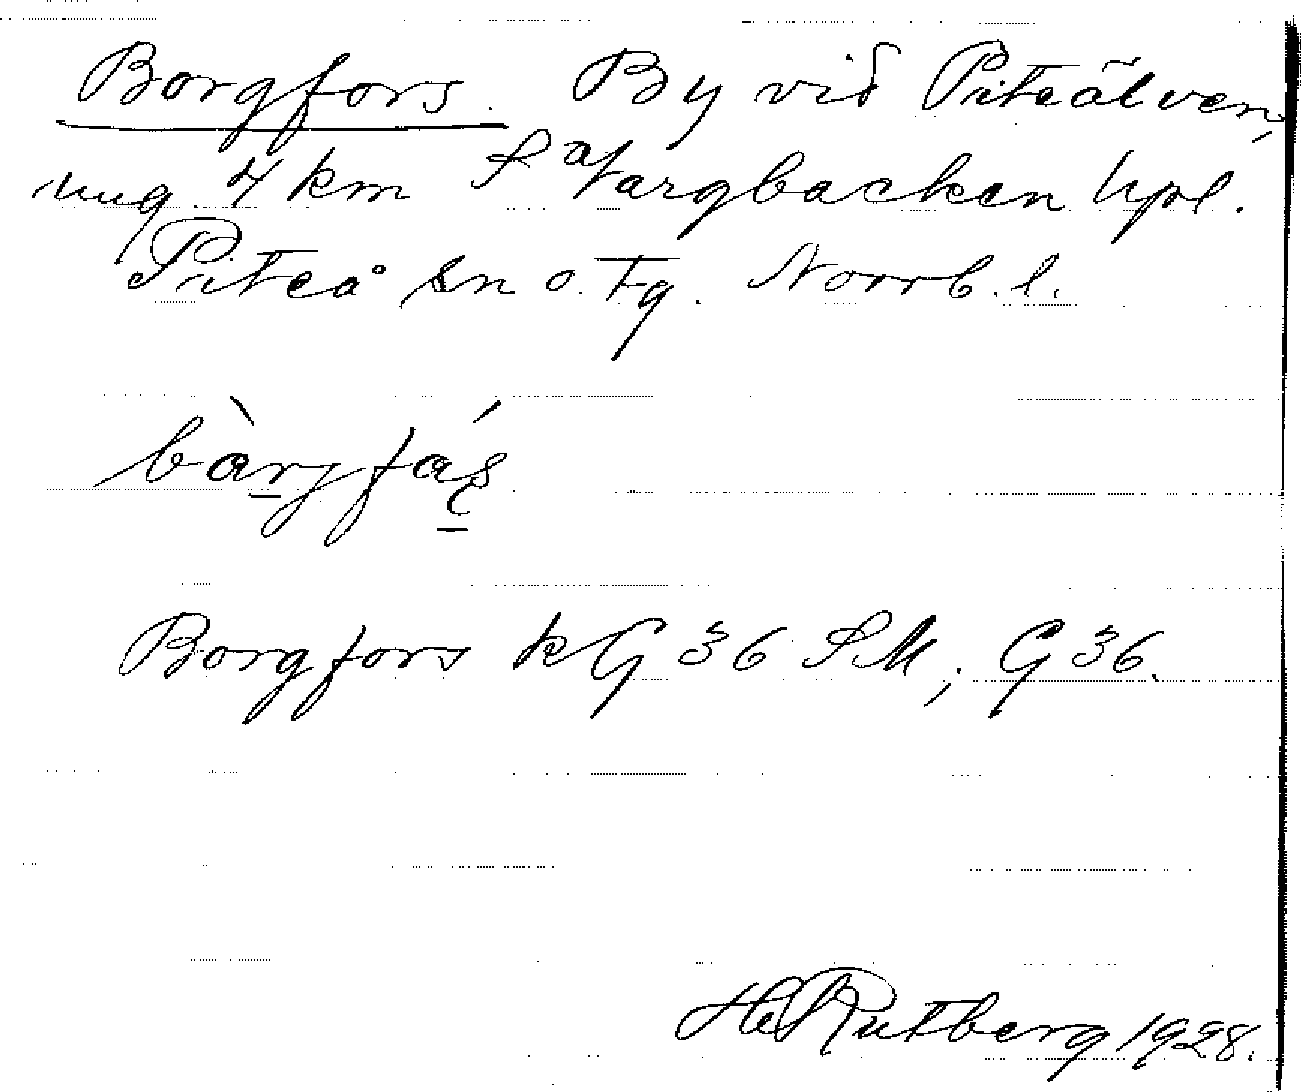 Borgfors. By vid Piteälven,
ung. 7 km S af Vargbacken hpl.
Piteå sn o. tg. Norrb. l.
bàrjfás̠
Borgfors kG 36 SM; G 36.
H Rutberg 1928.